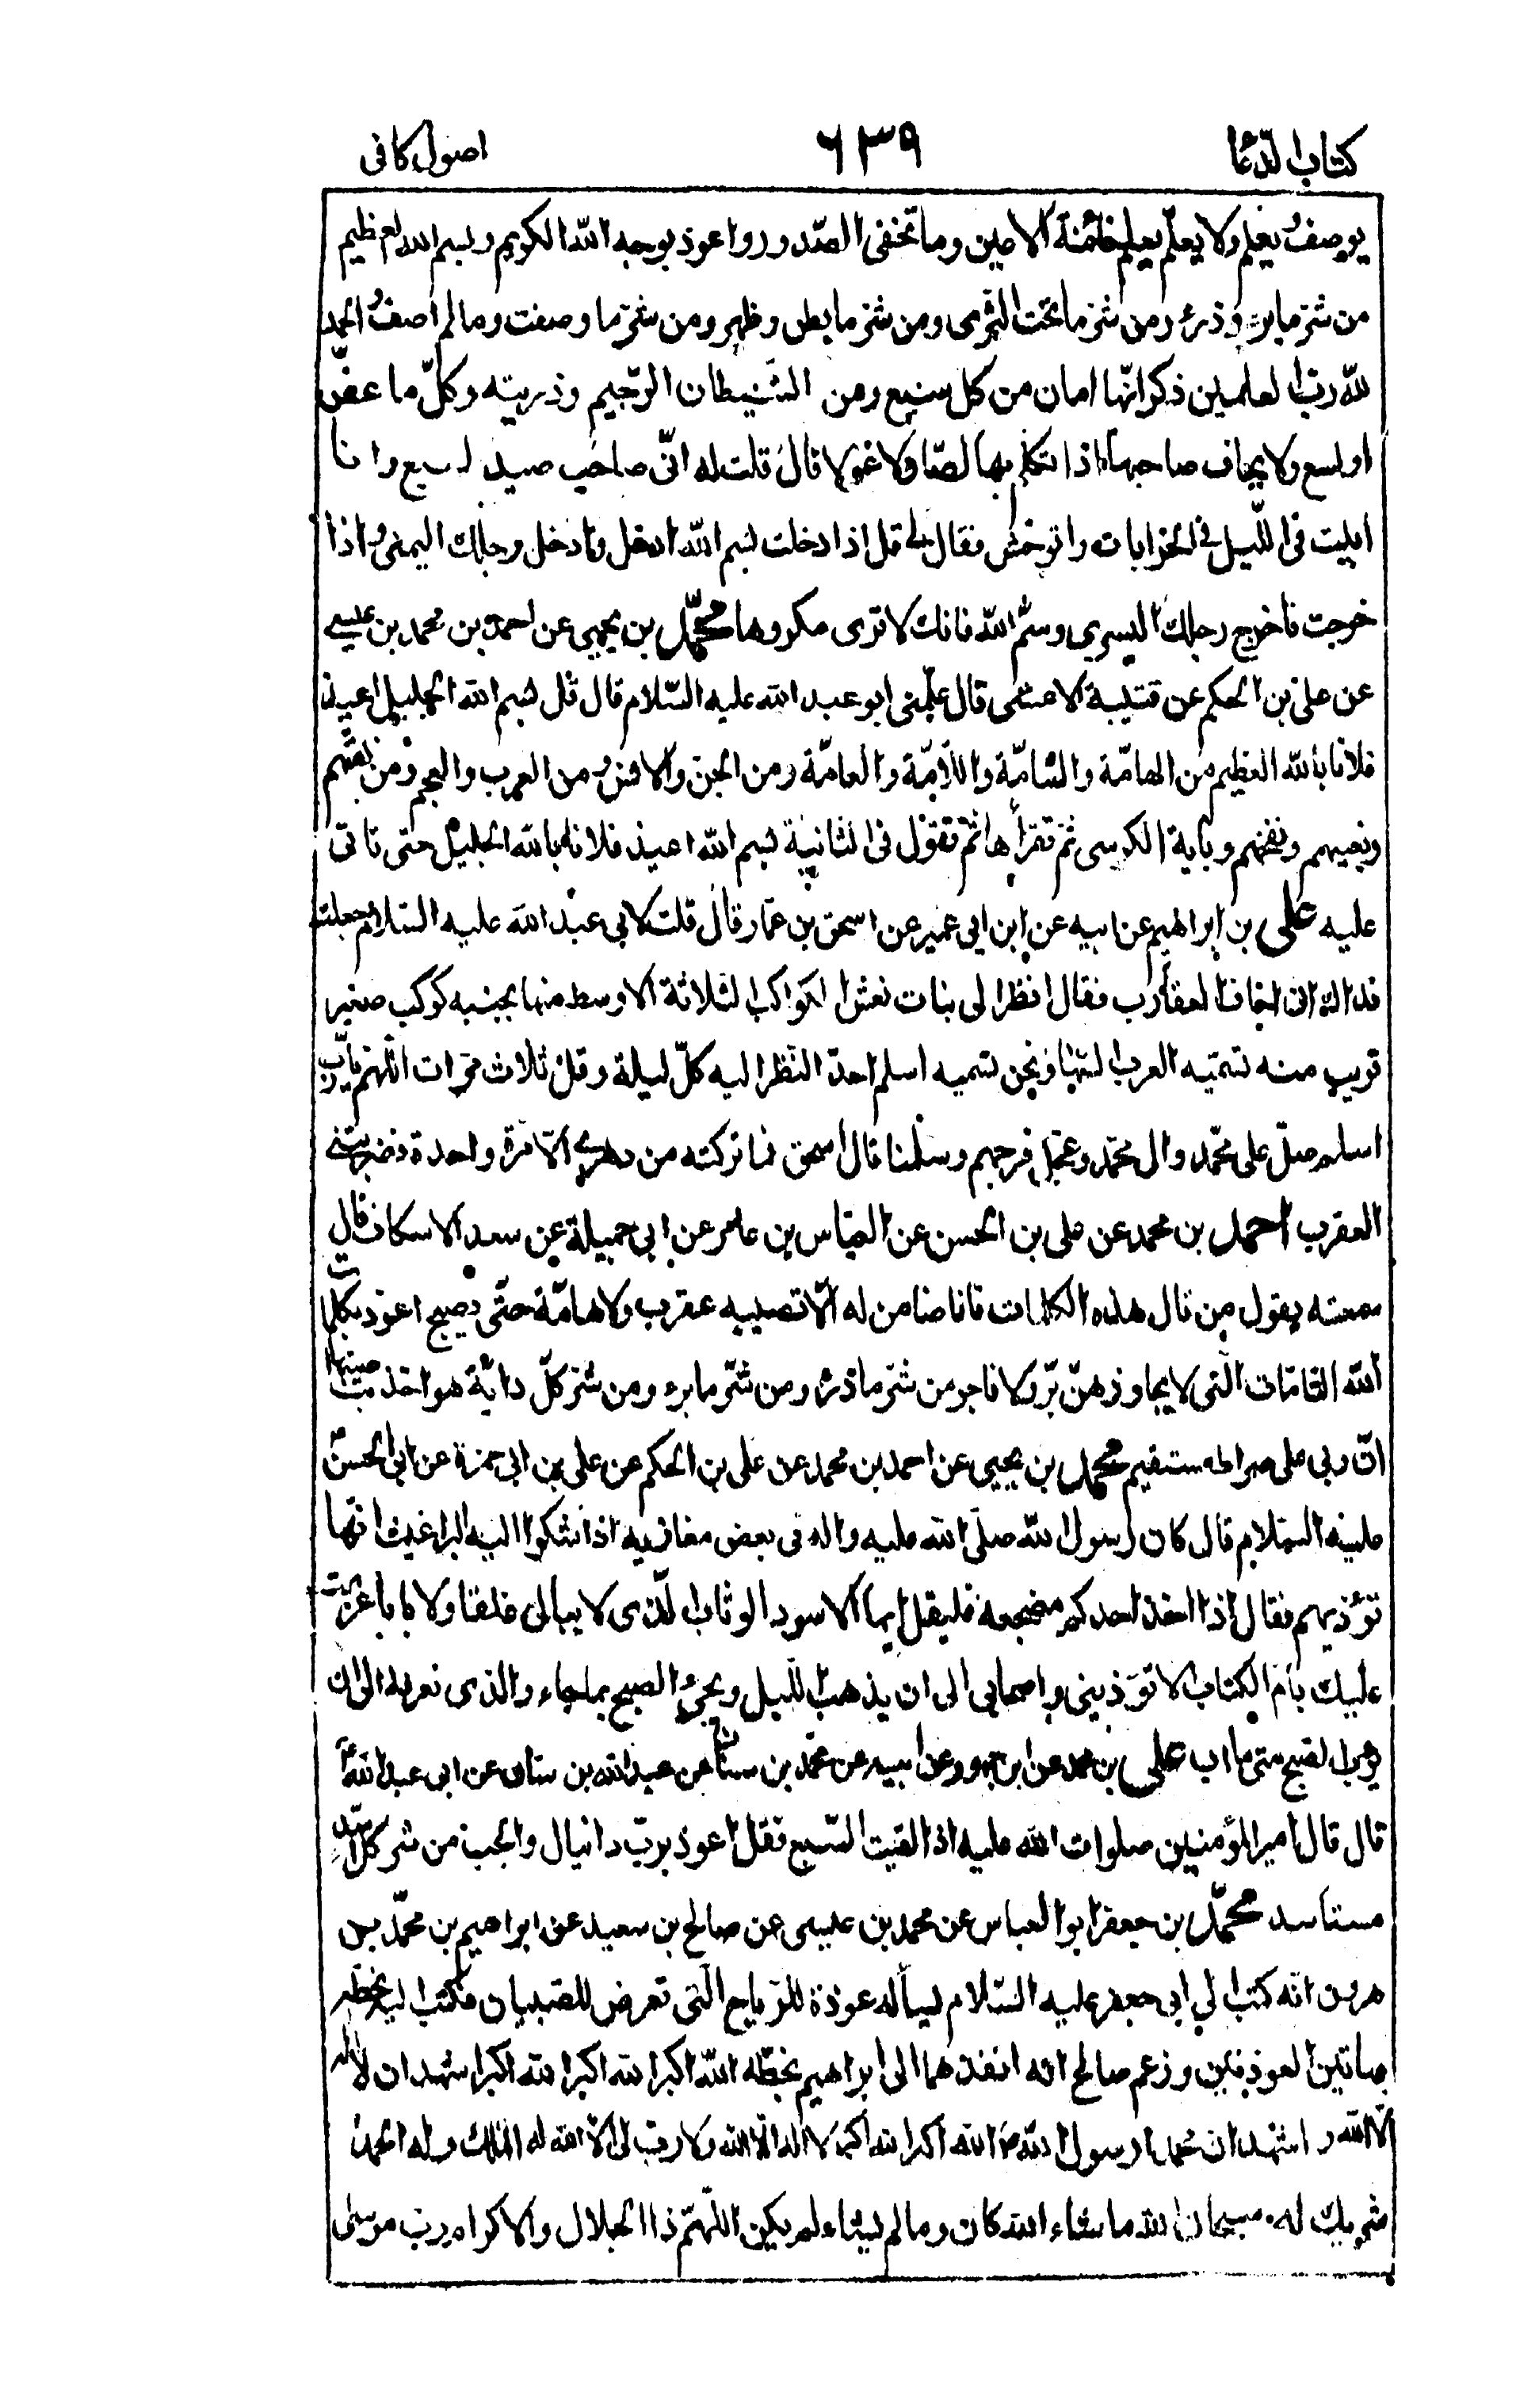 كتاب الدّعا ٦٣٩ اصول كافى
يوصف يعلم ولا يعلّم يعلم خائنة الاعين وما تخفى الصّدور واعوذ بوجه اللّه الكريم وبسم الله العظيم
من شرّ ما برء وذرء ومن شرّ ما تحت الثّرى ومن شرّ ما بطن وظهر ومن شرّ ما وصفت وما لم اصف والحمد
للّه ربّ العلمين ذكر انّها امان من كل سبع ومن الشّيطان الرّجيم وذريته وكلّ ما عضّ
او لسع ولا يخاف صاحبها اذا تكلم بها لصّا ولا غولا قال قلت له انّى صاحب صيد لسبع وانا
ابيت فى اللّيل فى الخرابات واتوحش فقال لى قل اذا دخلت بسم اللّه ادخل وادخل رجلك اليمنى واذا
خرجت فاخرج رجلك اليسرى وسمّ اللّه فانك لا ترى مكروها محمّد بن يحيى عن احمد بن محمد بن عيسى
عن على بن الحكم عن قتيبة الاعشى قال علّمنى ابو عبد الله عليه السّلام قال قل بسم الله الجليل اعيذ
فلانا باللّه العظيم من الهامّة والسّامّة واللّامّة والعامّة ومن الجن والانس ومن العرب والعجم ومن نفثهم
وبغيهم ونفخهم وباية الكرسى ثمّ تقرأها ثمّ تقول فى الثانية بسم اللّه اعيذ فلانا باللّه الجليل حتى تاتى
عليه على بن ابراهيم عن ابيه عن ابن ابى عمير عن اسحق بن عمّار قال قلت لابى عبد الله عليه السّلام جعلت
فداك انى اخاف العقارب فقال انظر الى بنات نعش الكواكب الثلاثة الاوسط منها بجنبه كوكب صغير
قريب منه تسمّيه العرب السّها ونحن نسميه اسلم احدّ النّظر اليه كلّ ليلة وقل ثلاث مرّات اللّهم يا ربّ
اسلم صلّ على محمّد وال محمّد وعجّل فرجهم وسلّمنا قال اسحق فما تركته من دهرى الّا مرّة واحدة فضربتنى
العقرب احمد بن محمد عن على بن الحسن عن العبّاس بن عامر عن ابى جميلة عن سعد الاسكاف قال
سمعته يقول من قال هذه الكلمات فانا ضامن له الّا تصيبه عقرب ولا هامّة حتّى يصبح اعوذ بكلمات
اللّه التامّات الّتى لا يجاوزهنّ برّ ولا فاجر من شرّ ما ذرء ومن شرّ ما برء ومن شرّ كلّ دابّة هو اخذ بناصيتها
انّ ربى على صراط مستقيم محمد بن يحيى عن احمد بن محمد عن على بن الحكم عن على بن ابى حمزة عن ابى الحسن
عليه السّلام قال كان رسول اللّه صلّى الله عليه واله فى بعض مغازيه اذا شكوا اليه البراغيث انّها
تؤذيهم فقال اذا اخذ احدكم مضجعه فليقل ايها الاسود الوثاب الّذى لا يبالى غلقا ولا بابا عزمت
عليك بامّ الكتاب الّا تؤذينى واصحابى الى ان يذهب اللّيل ويجئ الصبح بما جاء والذى نعرفه الى ان
يؤب الصّبح متى ما اب على بن محمد عن ابن جمهور عن ابيه عن محمّد بن سنان عن عبد الله بن سنان عن ابى عبد اللّه
قال قال امير المؤمنين صلوات اللّه عليه اذا لقيت السّبع فقل اعوذ بربّ دانيال والجب من شر كلّ اسد
مستاسد محمّد بن جعفر ابو العباس عن محمد بن عيسى عن صالح بن سعيد عن ابراهيم بن محمّد بن
هرون انّه كتب الى ابى جعفر عليه السّلام يسأله عوذة للرّياح الّتى تعرض للصّبيان فكتب اليه بخطّه
بهاتين العوذتين وزعم صالح انّه انفذهما الى ابراهيم بخطّه اللّه اكبر اللّه اكبر اللّه اكبر اشهد ان لا اله
الّا اللّه واشهد ان محمدا رسول اللّه اللّه اكبر اللّه اكبر لا اله الّا اللّه ولا ربّ لى الّا اللّه له الملك وله الحمد لا
شريك له سبحان اللّه ما شاء اللّه كان وما لم يشاء لم يكن اللّهمّ ذا الجلال والاكرام ربّ موسى